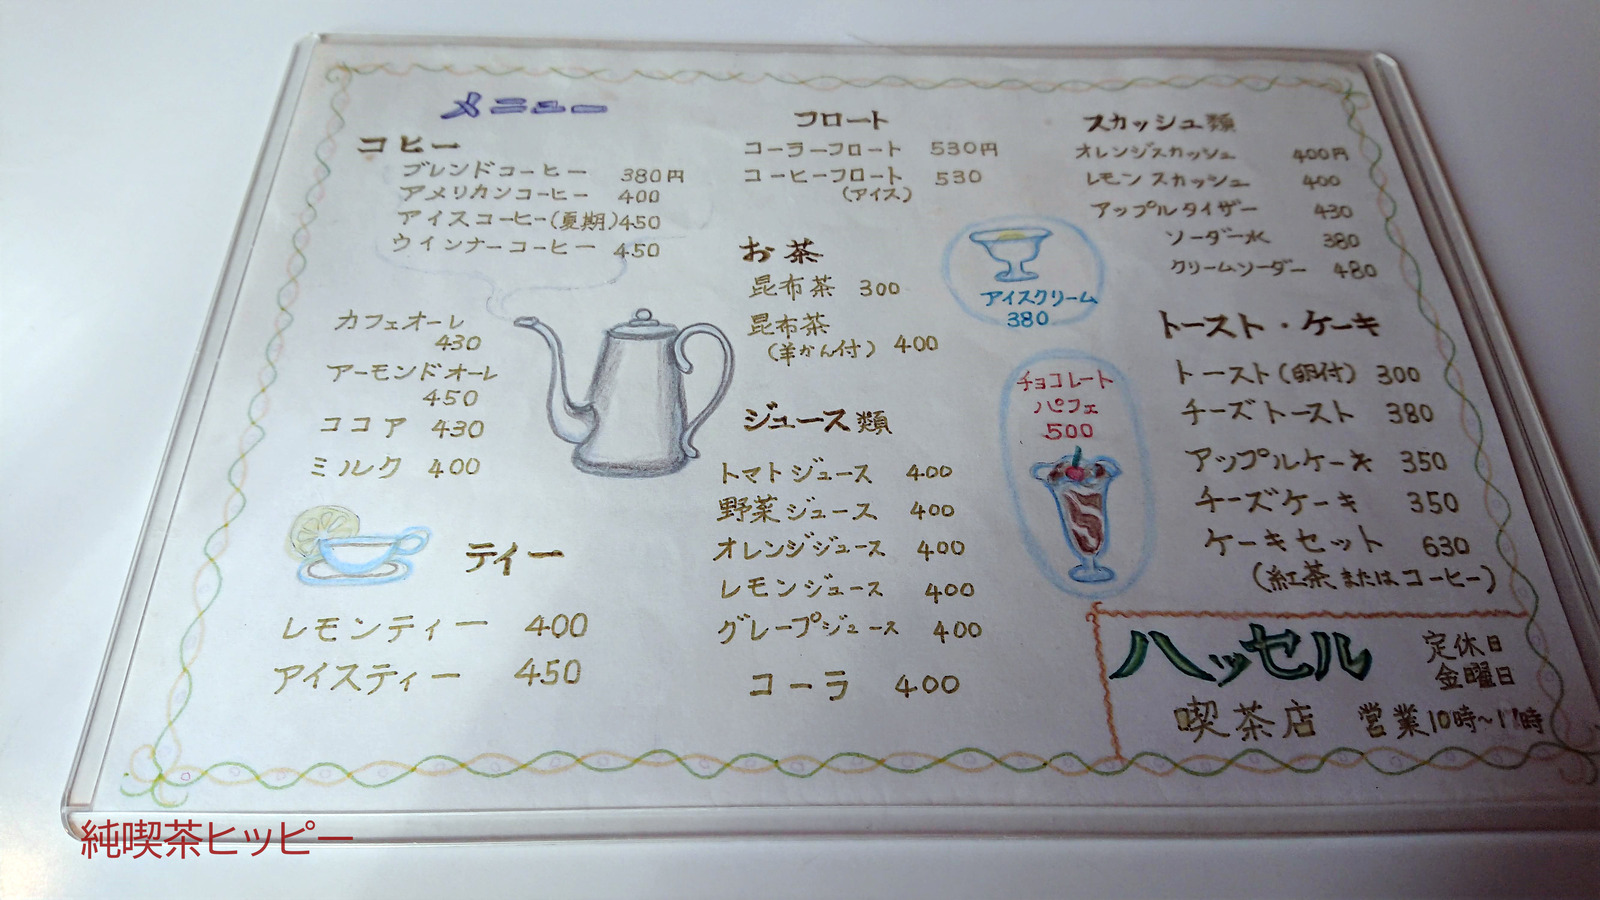 メニュー
コヒー
ブレンドコーヒー 380円
アメリカンコーヒー 400
アイスコーヒー(夏期)450
ウインナーコーヒー 450
カフェオーレ
430
アーモンドオーレ
450
ココア 430
ミルク 400
ティー
レモンティー 400
アイスティー 450
フロート
コーラーフロート 530円
コーヒーフロート 530
(アイス)
お茶
昆布茶 300
昆布茶
(羊かん付) 400
ジュース類
トマトジュース 400
野菜ジュース 400
オレンジジュース 400
レモンジュース 400
グレープジュース 400
コーラ 400
アイスクリーム
380
チョコレート
パフェ
500
スカッシュ類
オレンジスカッシュ 400円
レモンスカッシュ 400
アップルタイザー 430
ソーダー水 380
クリームソーダー 480
トースト・ケーキ
トースト(卵付) 300
チーズトースト 380
アップルケーキ 350
チーズケーキ 350
ケーキセット 630
(紅茶またはコーヒー)
ハッセル
定休日
金曜日
喫茶店 営業10時~17時
純喫茶ヒッピー